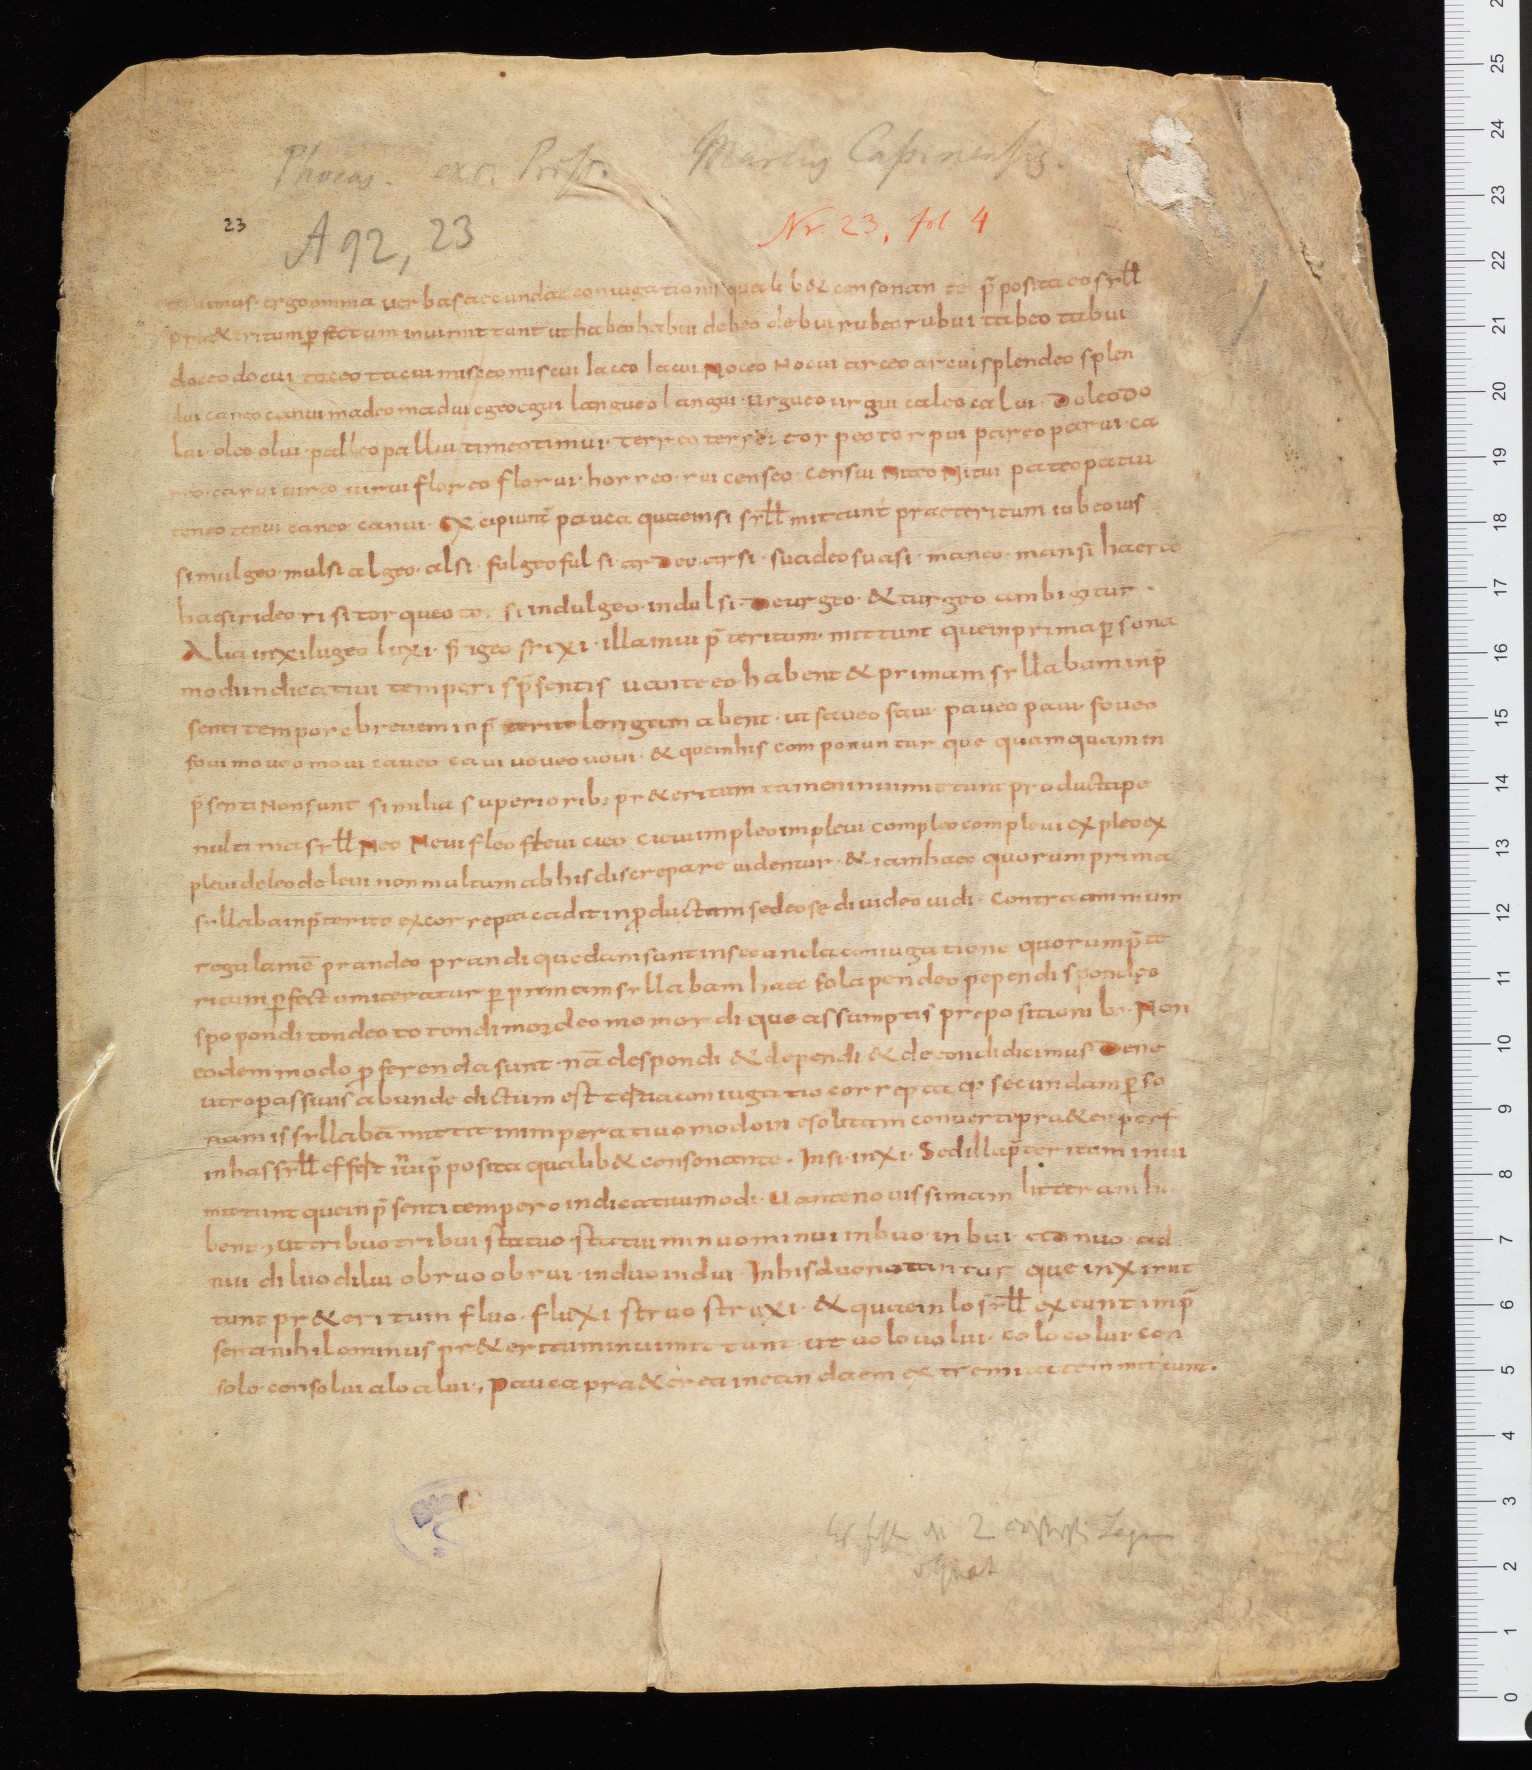 Phocas. exc. Prisc. Marcus Casinensis.
23
A 92, 23
Nr. 23, fol. 4
ergo omnia uerba secundae coniugationis qualib& consonante p̄posita eo sẏll
pr&eritum ꝑfectum in ui mittunt ut habeo habui debeo debui rubeo rubui tabeo tabui
doceo docui taceo tacui misceo miscui lateo latui Noceo Nocui arceo arcui splendeo splen
dui caneo canui madeo madui egeo egui langueo langui · urgueo urgui caleo calui · Doleo Do
lui · oleo olui · palleo pallui timeo timui · terreo terrui torpeo torpui pareo parui · ca
reo · carui uireo uirui floreo florui · horreo · rui censeo · censui Niteo Nitui pateo patui
teneo tenui caneo canui · Excipiunt̄ pauca quae in si sẏll mittunt praeteritum iubeo ius
si mulgeo · mulsi algeo · alsi · fulgeo fulsi · arDeo · arsi · suadeo suasi · maneo · mansi haereo
haesi rideo · risi torqueo to. si indulgeo · indulsi · Deurgeo · & turgeo ambigitur ·
Alia in xi lugeo luxi · frigeo frixi · illa in ui p̄teritum · mittunt que in prima ꝑsona
modi indicatiui temporis p̄sentis u ante eo habent & primam sẏllabam in p̄
senti tempore breuem in p̄terito longam abent · ut faueo faui · paueo paui · foueo
foui moueo moui caueo caui uoueo uoui · & que in his componuntur que quamquam in
p̄senti Non sunt similia superiorib; pr&eritum tamen in ui mittunt producta pe
nultima sẏll Neo Neui fleo fleui cieo ciui impleo impleui compleo compleui expleo ex
pleui deleo deleui non multum ab his discrepare uidentur · & iam haec quorum prima
sẏllaba in p̄terito ex correpta cadit in ꝓductam sedeo se di uideo uidi · Contra ammum
regulam ē prandeo prandi quedam sunt in secunda coniugatione quorum p̄te
ritum ꝑfectum iteratur ꝑ primam sẏllabam haec sola pendeo pependi spondeo
spopondi tondeo totondi mordeo momordi que assumptis prepositionib; · Non
eodem modo ꝓferenda sunt · nā despondi & dependi & detondi dicimus De ne
utro passiuis abunde dictum est tertia coniugatio correpta secundam ꝑso
nam is sẏllabā mittit in imperatiuo modo in e solutam conuerti pr&er perf
in has sẏll effect in ui p̄posita qualib& consonante · In si · in xi · Sed illa p̄teritum in ui
mittunt que in p̄senti tempero indicatiui modi · U ante nouissimam litteram ha
bent, ut tribuo tribui statuo statui minuo minui inbuo · inbui · nuo · ad
nui diluo dilui obruo obrui · induo indui · In his duo notantur que in x mit
tunt pr&eritum fluo · fluxi struo struxi · & quae in lo sẏll exeunt in p̄
senti nihilominus pr&eritum in ui mittunt · ut uolo uolui · colo colui · con
solo · consolui alo alui ·, Pauca pra&erea in eandaem extremitatem mittunt ·